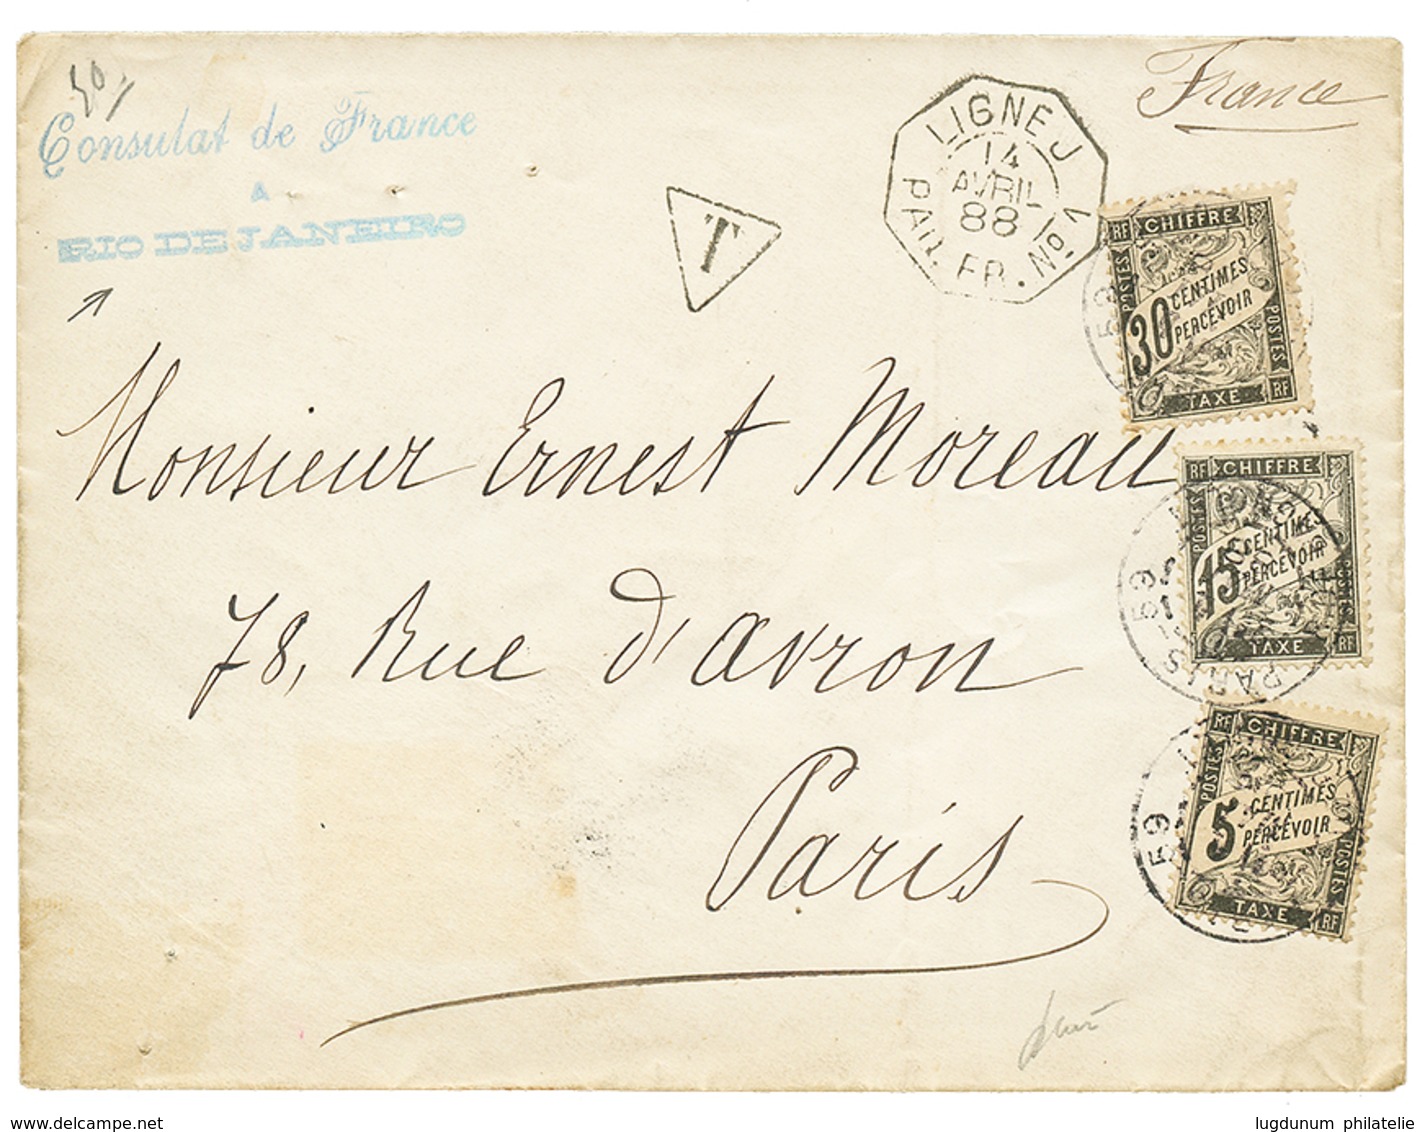 50
Consulat de France
A
RIO DE JANEIRO
T
LIGNE J
14
AVRIL
88
PAQ. FR. No 1
France
RF CHIFFRE
POSTES
30 CENTIMES
A
PERCEVOIR
POSTES
TAXE RF
Monsieur Ernest Moreau
RF CHIFFRE
POSTES
15 CENTIMES
PERCEVOIR
TAXE RF
59
PARIS
78, Rue d'avron
RF CHIFFRE
POSTES
5 CENTIMES
A
PERCEVOIR
POSTES
TAXE RF
59
Paris
www.delcampe.net
lugdunum philatelie